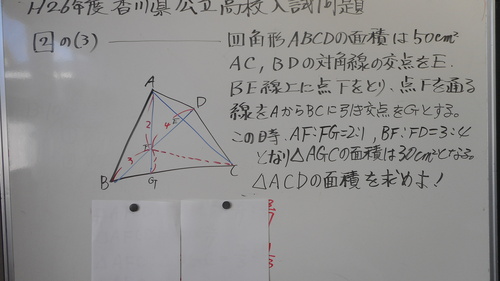 H26年度香川県公立高校入試問題
[2]の(3)
四角形ABCDの面積は50cm²
AC, BDの対角線の交点をE.
BE線上に点Fをとり、点Fを通る
線をAからBCに引き交点をGとする。
この時. AF:FG=2:1, BF:FD=3:4
となり△AGCの面積は30cm²となる。
△ACDの面積を求めよ!
A
D
2
4
E
F
3
B
G
C
3/7
1/3